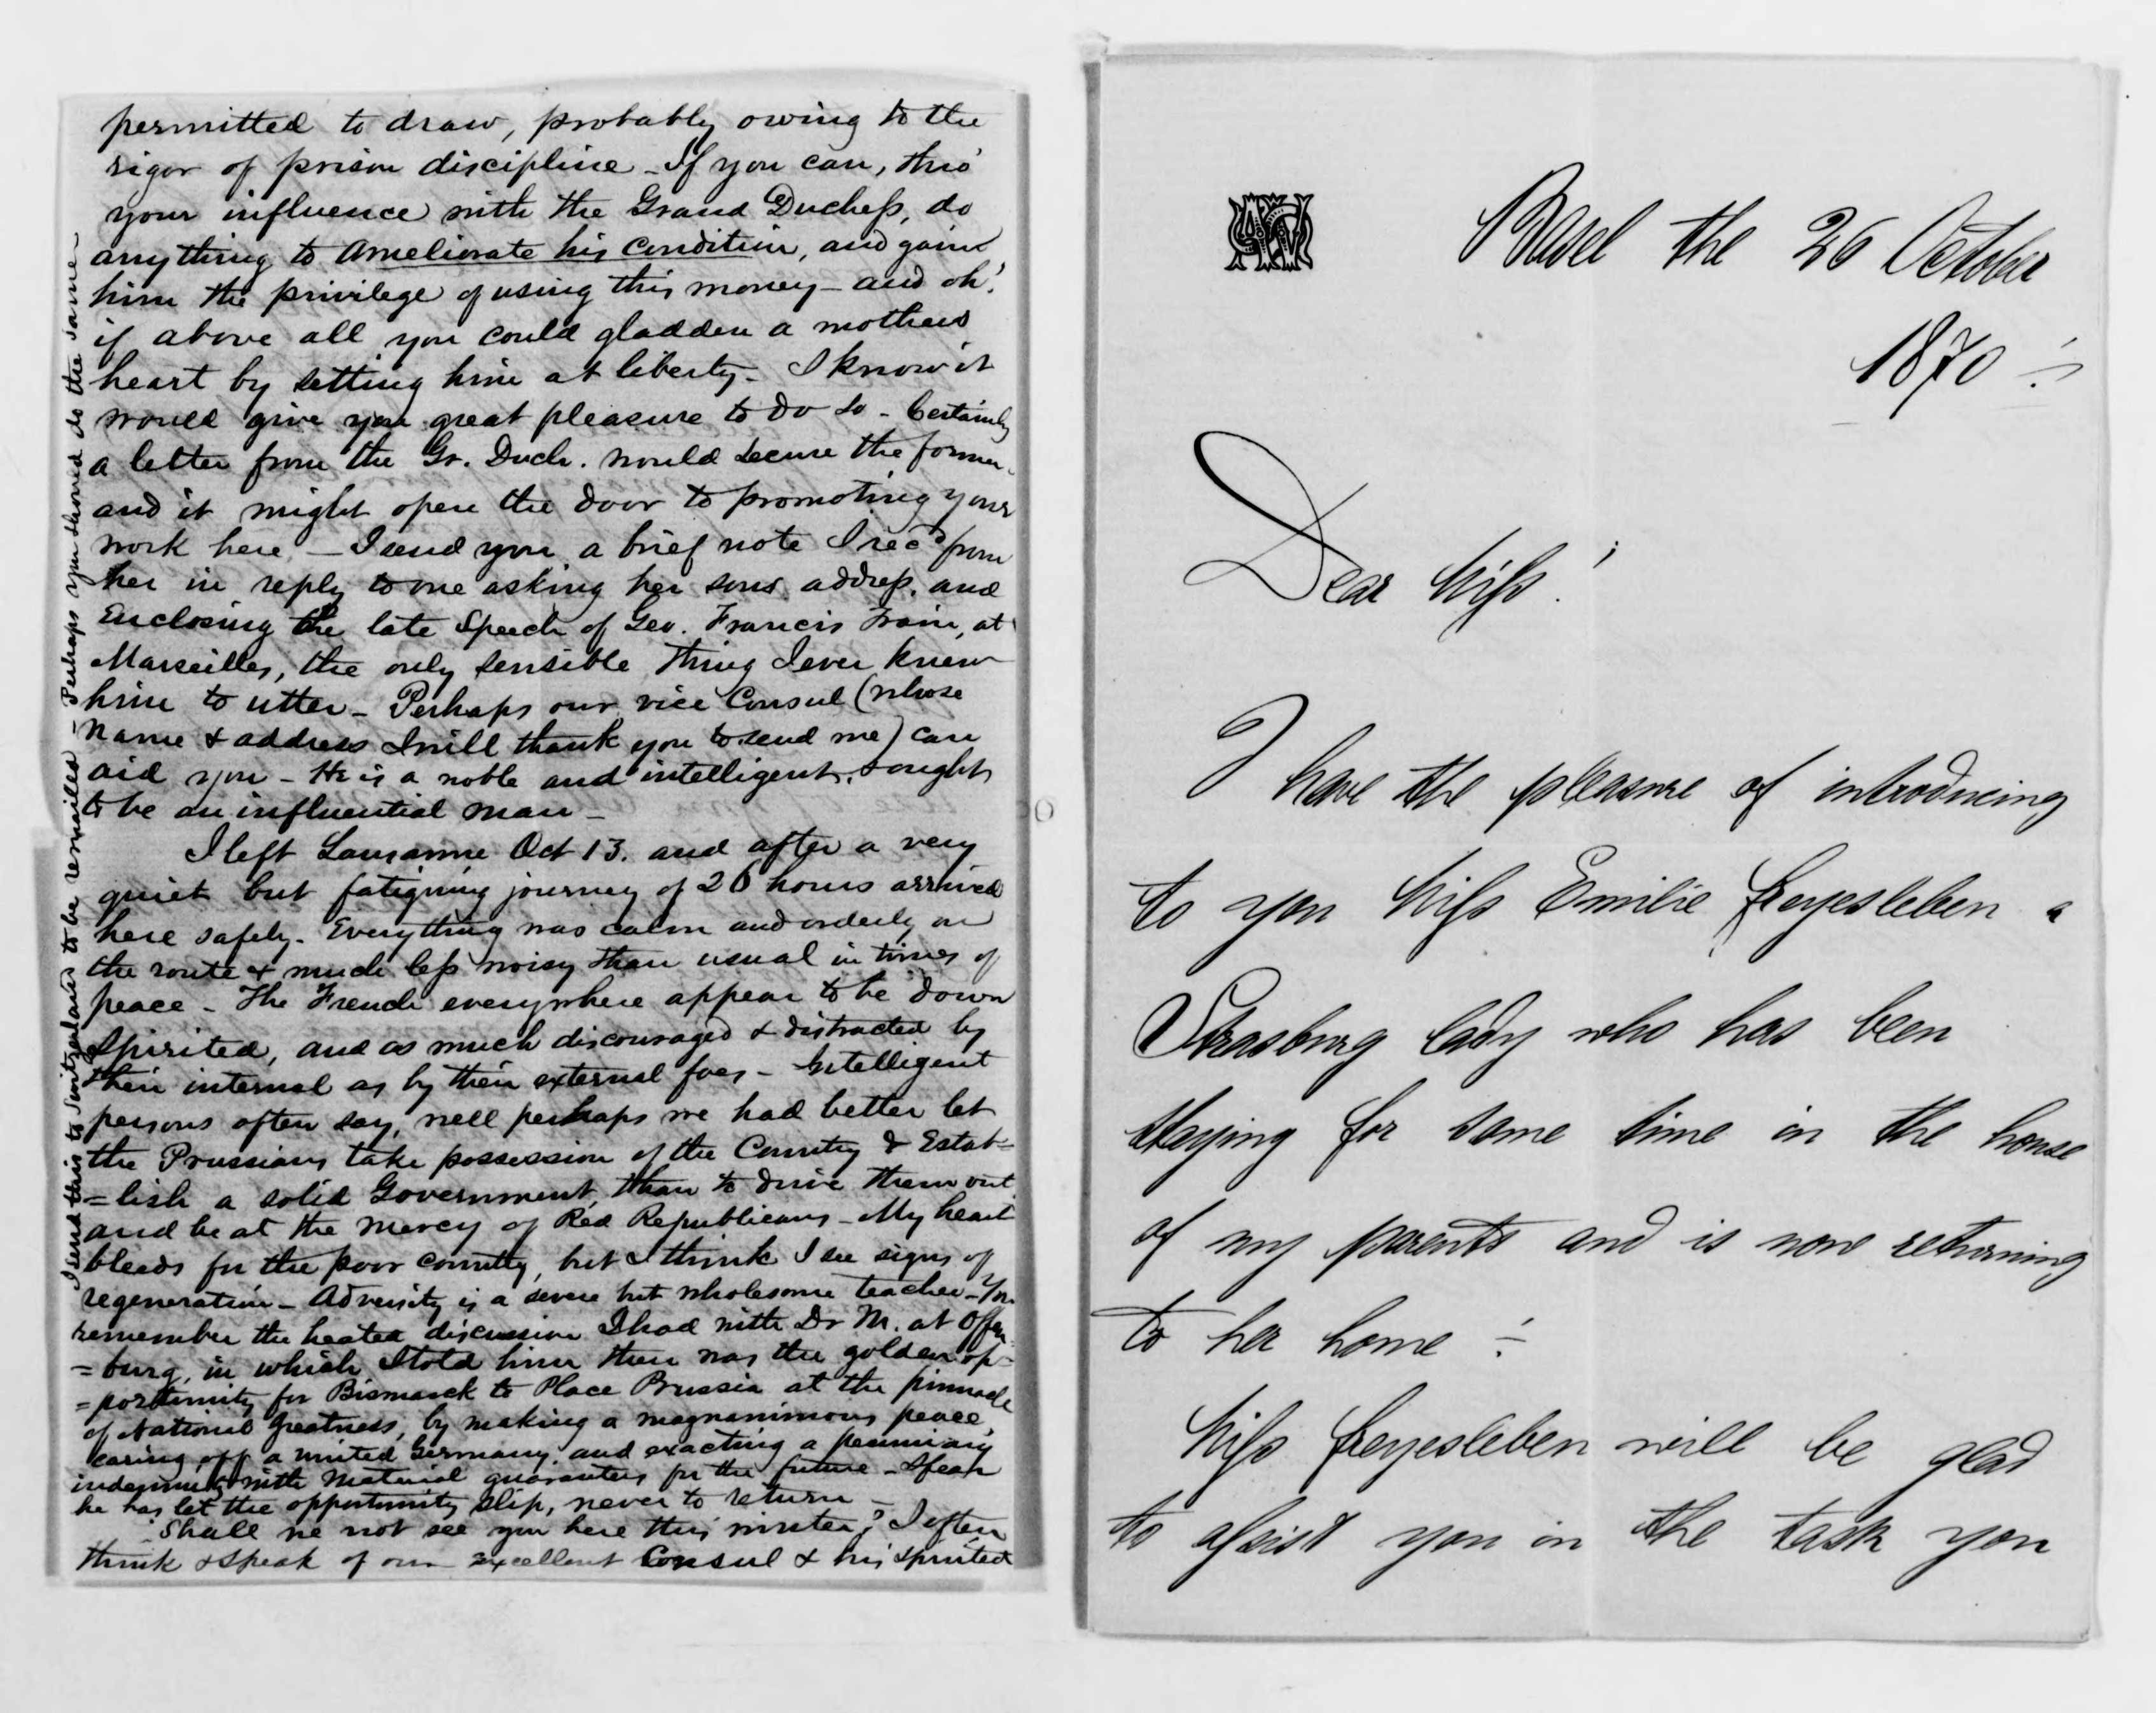 permitted to draw, probably owing to the
rigor of prison discipline - If you can, thro'
your influence with the Grand Duchess, do
anything to ameliorate his condition, and gain
him the privilege of using this money - and oh!
if above all you could gladden a mothers
heart by setting him at liberty - I know it
would give you great pleasure to do so - Certainly
a letter from the Gr. Duch. would secure the former
and it might open the door to promoting your
work here - I send you a brief note I rec'd from
her in reply to one asking her sons address, and
Enclosing the late Speech of Geo. Francis Train, at
Marseilles, the only sensible thing I ever knew
him to utter - Perhaps our vice Consul (whose
name & address I will thank you to send me) can
aid you - He is a noble and intelligent, & ought
to be an influential man -
I left Lausanne Oct 13. and after a very
quiet but fatiguing journey of 26 hours arrived
here safely. Everything was calm and orderly on
the route & much less noisy than usual in times of
peace - The French everywhere appear to be down
spirited, and as much discouraged & distracted by
their internal as by their external foes - Intelligent
persons often say, well perhaps we had better let
the Prussians take possession of the Country & Estab-
=lish a solid Government, than to drive them out
and be at the mercy of Red Republicans - My heart
bleeds for the poor country, but I think I see signs of
regeneration - Adversity is a severe but wholesome teacher - You
remember the heated discussion I had with Dr M. at Offen
=burg, in which I told him then was the golden op-
=portunity for Bismarck to Place Prussia at the pinnacle
of National Greatness, by making a magnanimous peace,
caring off a united Germany, and exacting a pecuniary
indemnity with Material guarantees for the future - I fear
he has let the opportunity slip, never to return -
Shall we not see you here this winter? I often
think & speak of our excellent Consul & his spirited
I send this to Switzerland to be remailed - Perhaps you should do the same -
Basel the 26 October
1870
Dear Miss!
I have the pleasure of introducing
to you Miss Emilie Freyesleben a
Strasburg lady who has been
staying for some time in the house
of my parents and is now returning
to her home
Miss Freyesleben will be glad
to assist you in the task you